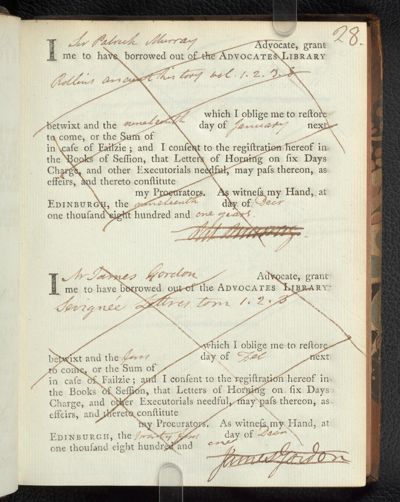 28.
I Sir Patrick Murray Advocate, grant
me to have borrowed out of the ADVOCATES LIBRARY
Rollins ancient history vol. 1. 2. 3.
which I oblige me to reſtore
betwixt and the nineteenth day of January next
to come, or the Sum of
in caſe of Failzie; and I conſent to the regiſtration hereof in
the Books of Seſſion, that Letters of Horning on ſix Days
Charge, and other Executorials needful, may paſs thereon, as
effeirs, and thereto conſtitute
my Procurators. As witneſs my Hand, at
EDINBURGH, the nineteenth day of Decr
one thouſand eight hundred and one years
I Mr James Gordon Advocate, grant
me to have borrowed out of the ADVOCATES LIBRARY
Sevignée Lettres tom 1. 2. 3
which I oblige me to reſtore
betwixt and the day of Feb next
to come, or the Sum of
in caſe of Failzie; and I conſent to the regiſtration hereof in
the Books of Seſſion, that Letters of Horning on ſix Days
Charge, and other Executorials needful, may paſs thereon, as
effeirs, and thereto conſtitute
my Procurators. As witneſs my Hand, at
EDINBURGH, the twenty day of Decr
one thouſand eight hundred and one
James Gordon